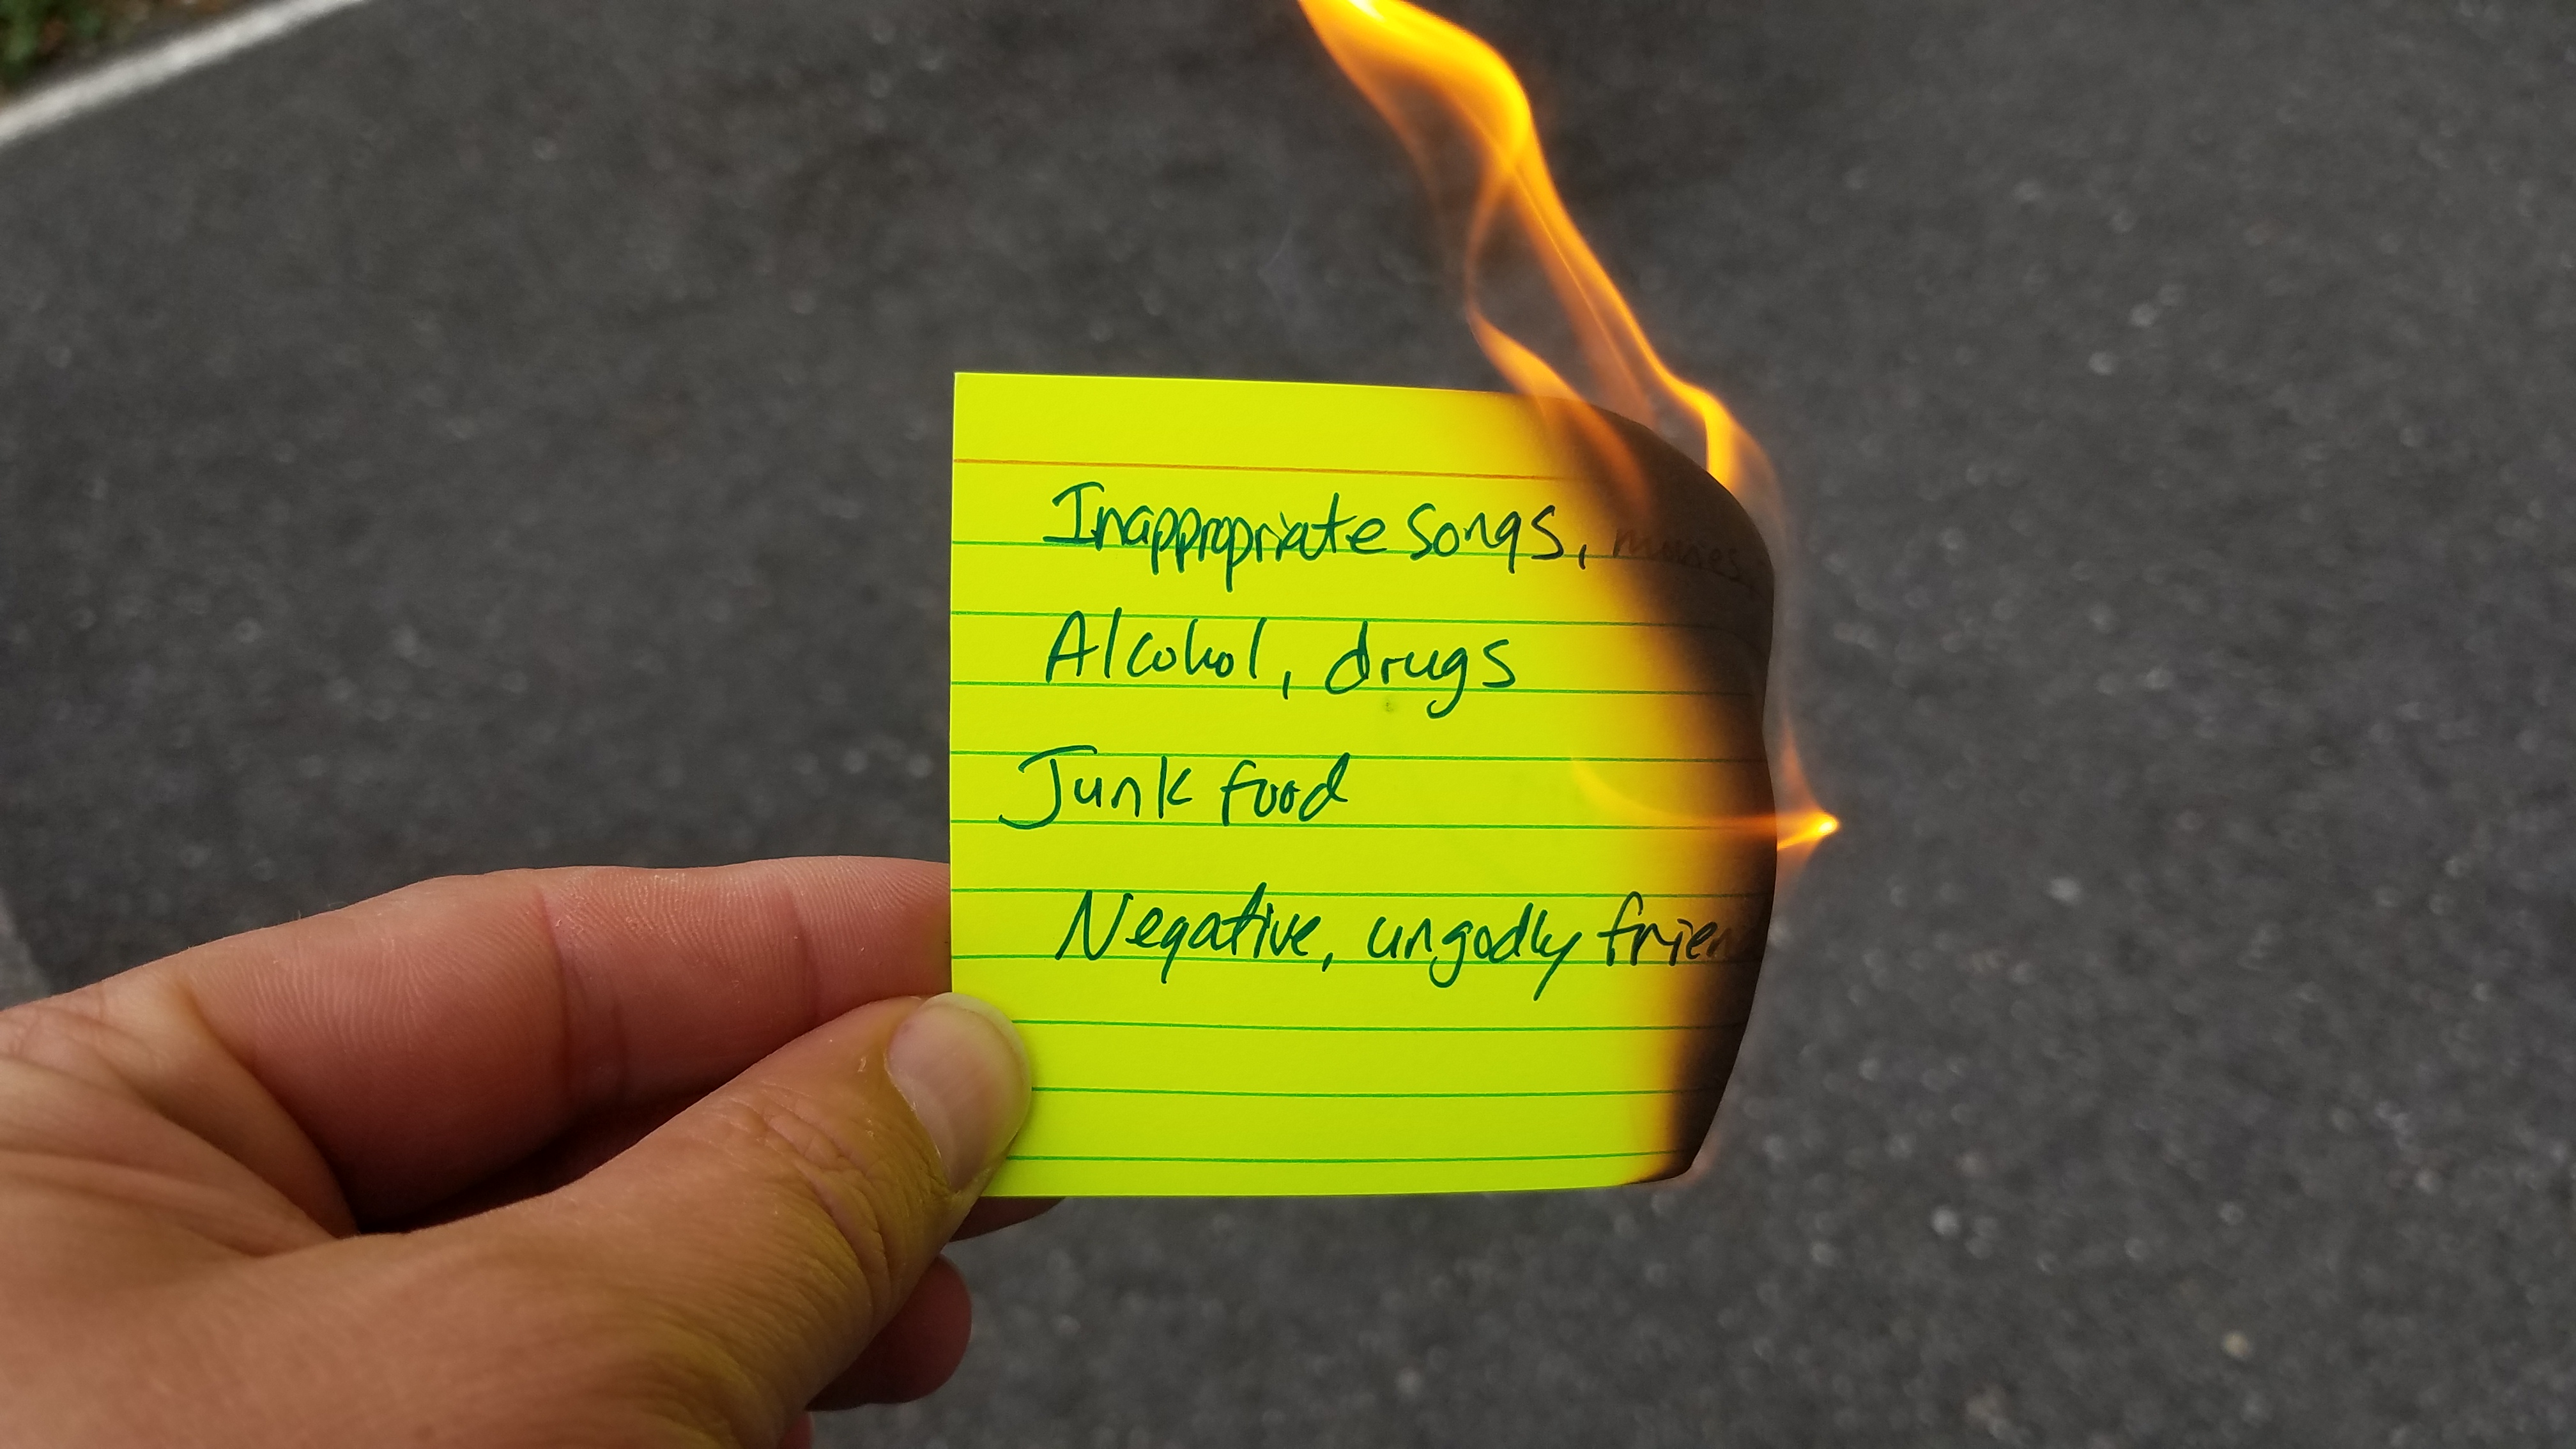 Inappropriate songs, movies
Alcohol, drugs
Junk food
Negative, ungodly frien